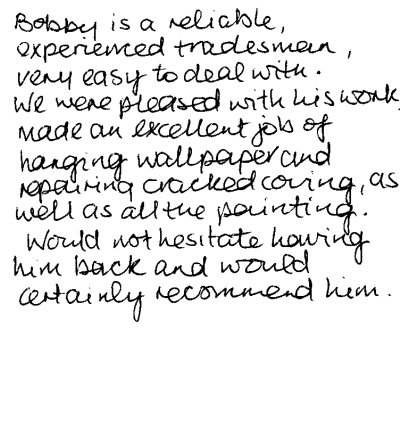 Bobby is a reliable,
experienced tradesman,
very easy to deal with.
We were pleased with his work,
made an excellent job of
hanging wallpaper and
repairing cracked coving, as
well as all the painting.
Would not hesitate having
him back and would
certainly recommend him.